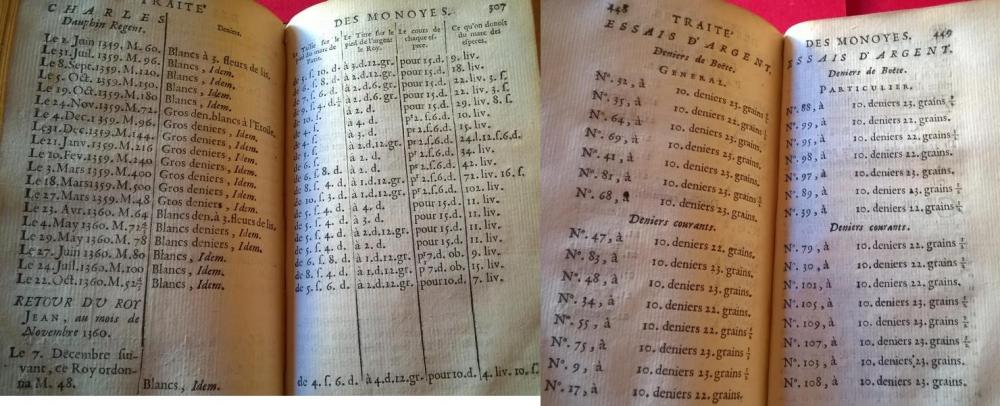 TRAITÉ
CHARLES
Dauphin Regent.
Deniers.
Le 2. Juin 1359. M. 60. Blancs à 3. fleurs de lis.
Le 31. Juil. 1359. M. 96. Blancs, Idem.
Le 8. Sept. 1359. M. 120. Blancs, Idem.
Le 5. Oct. 1359. M. 150. Blancs, Idem.
Le 19. Oct. 1359. M. 180 Gros den. blancs à l'Etoile.
Le 24. Nov. 1359. M. 72. Gros deniers, Idem.
Le 4. Dec. 1359. M. 96. Gros deniers, Idem.
Le 31. Dec. 1359. M. 144. Gros deniers, Idem.
Le 21. Janv. 1359. M. 216 Gros deniers, Idem.
Le 10. Fev. 1359. M. 240 Gros deniers, Idem.
Le 3. Mars 1359. M. 400 Gros deniers, Idem.
Le 18. Mars 1359. M. 500 Gros deniers, Idem.
Le 27. Mars 1359. M. 48 Blancs den. à 3. fleurs de lis.
Le 23. Avr. 1360. M. 64 Blancs deniers, Idem.
Le 4. May 1360. M. 72 Blancs deniers, Idem.
Le 29. May 1360. M. 78 Blancs, Idem.
Le 27. Juin 1360. M. 80 Blancs, Idem.
Le 24. Juil. 1360. M. 100 Blancs, Idem.
Le 22. Oct. 1360. M. 52 Blancs, Idem.
RETOUR DU ROY
JEAN, au mois de
Novembre 1360.
Le 7. Décembre sui-
vant, ce Roy ordon-
na M. 48. Blancs, Idem.
DES MONOYES. 307
La Taille sur le pied du marc de Paris.
Le Titre sur le pied de l'argent le Roy.
Le cours de chaque espece.
Ce qu'on donoit du marc des especes.
de 5. ſ. 10. d. à 3.d.12.gr. pour 15.d. 9. liv.
pour 15.d. 18. liv.
à 2.d.6.gr. pour 15.d. 22. liv. 3. ſ.
à 2.d.6.gr. pour 15.d.
de 10. ſ. à 2. d. pour 15.d. 29. liv. 8. ſ.
de 4. ſ. à 4. d. pr 2.ſ.6.d. 15. liv.
à 3. d. pr 2.ſ.6.d.
à 2.d.12.gr. pr 2.ſ.6.d. 24.12.ſ.6.d.
à 2. d. pr 2.ſ.6.d. 34. liv.
de 6. ſ. 8. d. à 2. d. pr 2.ſ.6.d. 42. liv.
de 8. ſ. 4. d. à 1.d.12.gr. pr 2.ſ.6.d. 72. liv. 16. ſ.
à 1.d.12.gr. pr 2.ſ.6.d. 102. liv.
à 4. d. pour 15.d. 11. liv.
de 5. ſ. 4. d. à 3. d. pour 15.d. 11. liv.
à 2.d.12.gr. pour 15.d. 11. liv.
à 2. d. pour 15.d. 11. liv.
de 6. ſ. 8. d. à 1.d.12.gr. pr 7.d. ob. 9. liv.
de 8. ſ. 4. d. à 1.d.12.gr. pr 7.d. ob. 15. liv.
à 2.d.12.gr. pour 10.d. 7. liv.
de 4. ſ. 6. d. à 4.d.12.gr. pour 10.d. 4. liv. 10. ſ.
448 TRAITÉ
ESSAIS D'ARGENT.
Deniers de Boëte.
GENERAL.
N°. 32, à 10. deniers 23. grains
N°. 35, à 10. deniers 22. grains
N°. 64, à 10. deniers 23. grains.
N°. 69, à 10. deniers 22. grains
N°. 41, à 10. deniers 23. grains.
N°. 81, à 10. deniers 23. grains
N°. 68, à 10. deniers 23. grains.
Deniers courants.
N°. 47, à 10. deniers 22. grains.
N°. 83, à 10. deniers 23. grains.
N°. 48, à 10. deniers 23. grains.
N°. 34, à 10. deniers 22. grains.
N°. 55, à 10. deniers 22. grains
N°. 75, à 10. deniers 23. grains
N°. 9, à 10. deniers 23. grains
N°. 17, à 10. deniers 22. grains.
DES MONOYES. 449
ESSAIS D'ARGENT.
Deniers de Boëte.
PARTICULIER.
N°. 88, à 10. deniers 23. grains
N°. 99, à 10. deniers 22. grains.
N°. 95, à 10. deniers 22. grains
N°. 98, à 10. deniers 22. grains.
N°. 97, à 10. deniers 23. grains.
N°. 89, à 10. deniers 23. grains
N°. 39, à 10. deniers 22. grains
Deniers courants.
N°. 79, à 10. deniers 22. grains
N°. 30, à 10. deniers 22. grains
N°. 101, à 10. deniers 22. grains.
N°. 105, à 10. deniers 23. grains
N°. 109, à 10. deniers 23. grains
N°. 107, à 10. deniers 22. grains
N°. 103, à 10. deniers 23. grains.
N°. 108, à 10. deniers 23. grains.